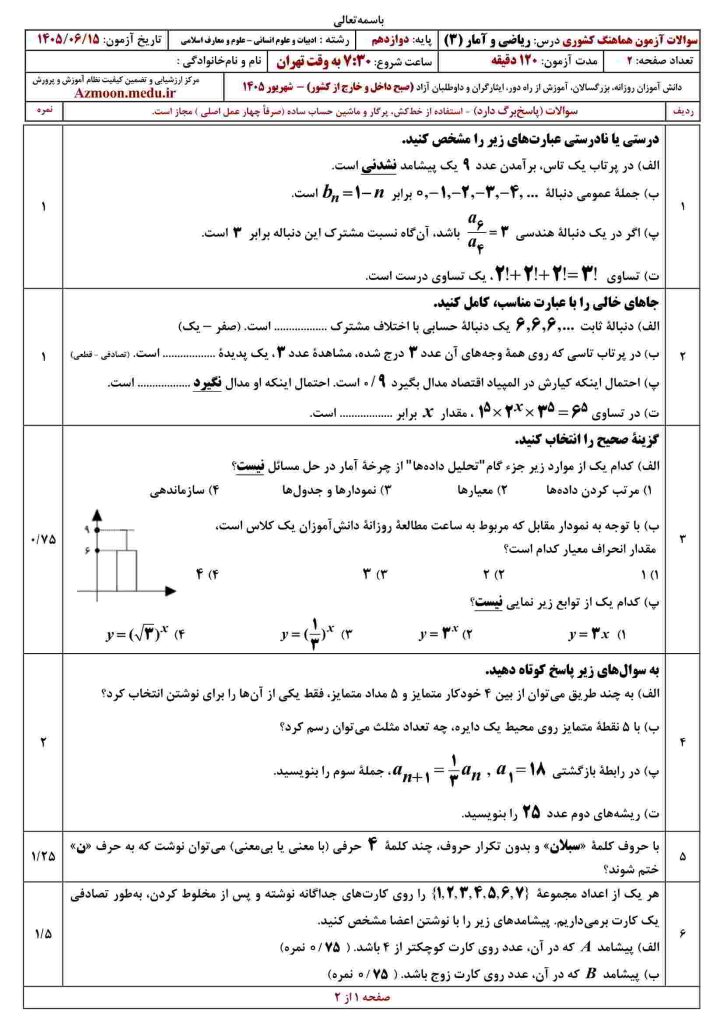 باسمه‌تعالی
سوالات آزمون هماهنگ کشوری درس: ریاضی و آمار (۳)
پایه: دوازدهم
رشته : ادبیات و علوم انسانی - علوم و معارف اسلامی
تاریخ آزمون: ۱۴۰۵/۰۶/۱۵
تعداد صفحه: ۲
مدت آزمون: ۱۲۰ دقیقه
ساعت شروع: ۷:۳۰ به وقت تهران
نام و نام‌خانوادگی :
دانش آموزان روزانه، بزرگسالان، آموزش از راه دور، ایثارگران و داوطلبان آزاد (صبح داخل و خارج از کشور) – شهریور ۱۴۰۵
مرکز ارزشیابی و تضمین کیفیت نظام آموزش و پرورش
Azmoon.medu.ir
ردیف
سوالات (پاسخ‌برگ دارد) - استفاده از خط‌کش، پرگار و ماشین حساب ساده (صرفاً چهار عمل اصلی ) مجاز است.
نمره
۱
درستی یا نادرستی عبارت‌های زیر را مشخص کنید.
الف) در پرتاب یک تاس، برآمدن عدد ۹ یک پیشامد نشدنی است.
ب) جملهٔ عمومی دنبالهٔ ۰,−۱,−۲,−۳,−۴, ... برابر bₙ = ۱−n است.
پ) اگر در یک دنبالهٔ هندسی a۶/a۴ = ۳ باشد، آن‌گاه نسبت مشترک این دنباله برابر ۳ است.
ت) تساوی ۲!+۲!+۲!=۳!، یک تساوی درست است.
۱
۲
جاهای خالی را با عبارت مناسب، کامل کنید.
الف) دنبالهٔ ثابت ۶,۶,۶,... یک دنبالهٔ حسابی با اختلاف مشترک .................. است. (صفر – یک)
ب) در پرتاب تاسی که روی همهٔ وجه‌های آن عدد ۳ درج شده، مشاهدهٔ عدد ۳، یک پدیدهٔ .................. است. (تصادفی - قطعی)
پ) احتمال اینکه کیارش در المپیاد اقتصاد مدال بگیرد ۰/۹ است. احتمال اینکه او مدال نگیرد .................. است.
ت) در تساوی ۱^۵×۲^x×۳^۵=۶^۵ ، مقدار x برابر .................. است.
۱
۳
گزینهٔ صحیح را انتخاب کنید.
الف) کدام یک از موارد زیر جزء گام"تحلیل داده‌ها" از چرخهٔ آمار در حل مسائل نیست؟
۱) مرتب کردن داده‌ها ۲) معیارها ۳) نمودارها و جدول‌ها ۴) سازماندهی
ب) با توجه به نمودار مقابل که مربوط به ساعت مطالعهٔ روزانهٔ دانش‌آموزان یک کلاس است،
مقدار انحراف معیار کدام است؟
۱) ۱ ۲) ۲ ۳) ۳ ۴) ۴
۹
۶
پ) کدام یک از توابع زیر نمایی نیست؟
۱) y = ۳x ۲) y = ۳^x ۳) y = (۱/۳)^x ۴) y = (√۳)^x
۰/۷۵
۴
به سوال‌های زیر پاسخ کوتاه دهید.
الف) به چند طریق می‌توان از بین ۴ خودکار متمایز و ۵ مداد متمایز، فقط یکی از آن‌ها را برای نوشتن انتخاب کرد؟
ب) با ۵ نقطهٔ متمایز روی محیط یک دایره، چه تعداد مثلث می‌توان رسم کرد؟
پ) در رابطهٔ بازگشتی a۱=۱۸ , aₙ₊۱ = ۱/۳ aₙ، جملهٔ سوم را بنویسید.
ت) ریشه‌های دوم عدد ۲۵ را بنویسید.
۲
۵
با حروف کلمهٔ «سبلان» و بدون تکرار حروف، چند کلمهٔ ۴ حرفی (با معنی یا بی‌معنی) می‌توان نوشت که به حرف «ن»
ختم شوند؟
۱/۲۵
۶
هر یک از اعداد مجموعهٔ {۱,۲,۳,۴,۵,۶,۷} را روی کارت‌های جداگانه نوشته و پس از مخلوط کردن، به‌طور تصادفی
یک کارت برمی‌داریم. پیشامدهای زیر را با نوشتن اعضا مشخص کنید.
الف) پیشامد A که در آن، عدد روی کارت کوچکتر از ۴ باشد. ( ۰/۷۵ نمره)
ب) پیشامد B که در آن، عدد روی کارت زوج باشد. ( ۰/۷۵ نمره)
۱/۵
صفحه ۱ از ۲